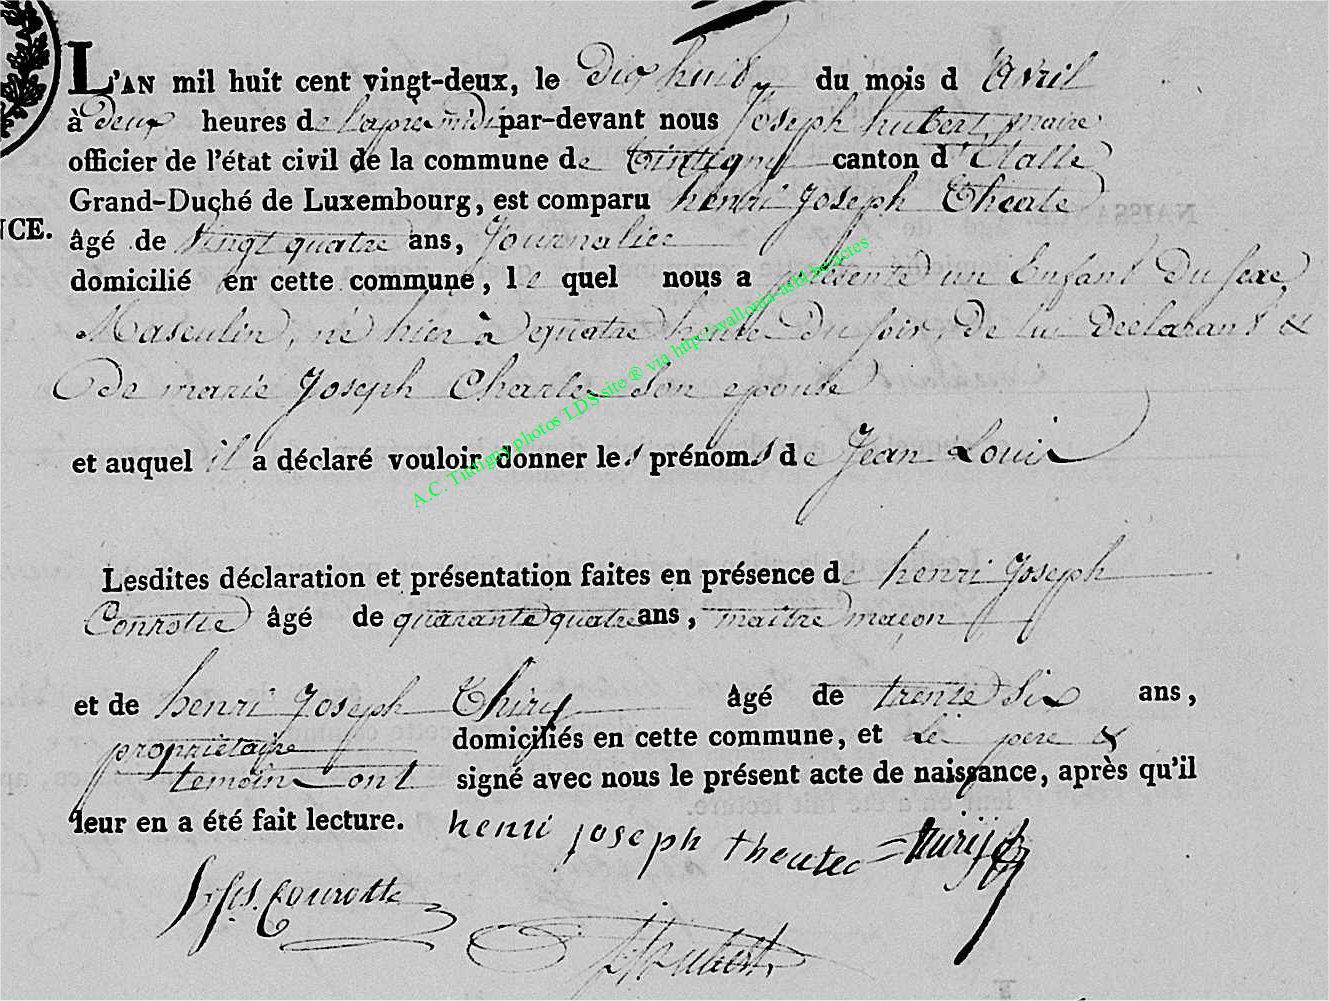 L'AN mil huit cent vingt-deux, le Dix huit du mois d'Avril
à deux heures de l'apres midi par-devant nous Joseph hubert, maire
officier de l'état civil de la commune de Tintigny canton d'Etalle
Grand-Duché de Luxembourg, est comparu henri Joseph Theate
NCE.
âgé de vingt quatre ans, Journalier
domicilié en cette commune, le quel nous a présenté un Enfant Du sexe
Masculin, né hier à quatre heures Du soir, De lui Déclarant &
De marie Joseph Charles son epouse
et auquel il a déclaré vouloir donner les prénoms de Jean Louis
Lesdites déclaration et présentation faites en présence de henri Joseph
Conrotte âgé de quarante quatre ans, maitre maçon
et de henri Joseph Thiry âgé de trente six ans,
propriétaire domiciliés en cette commune, et Le pere &
temoins ont signé avec nous le présent acte de naissance, après qu'il
leur en a été fait lecture. henri joseph theatee
Conrotte
J Hubert
A.C. Tintigny photos LDS site ® via http://wallonia-asbl.be/actes